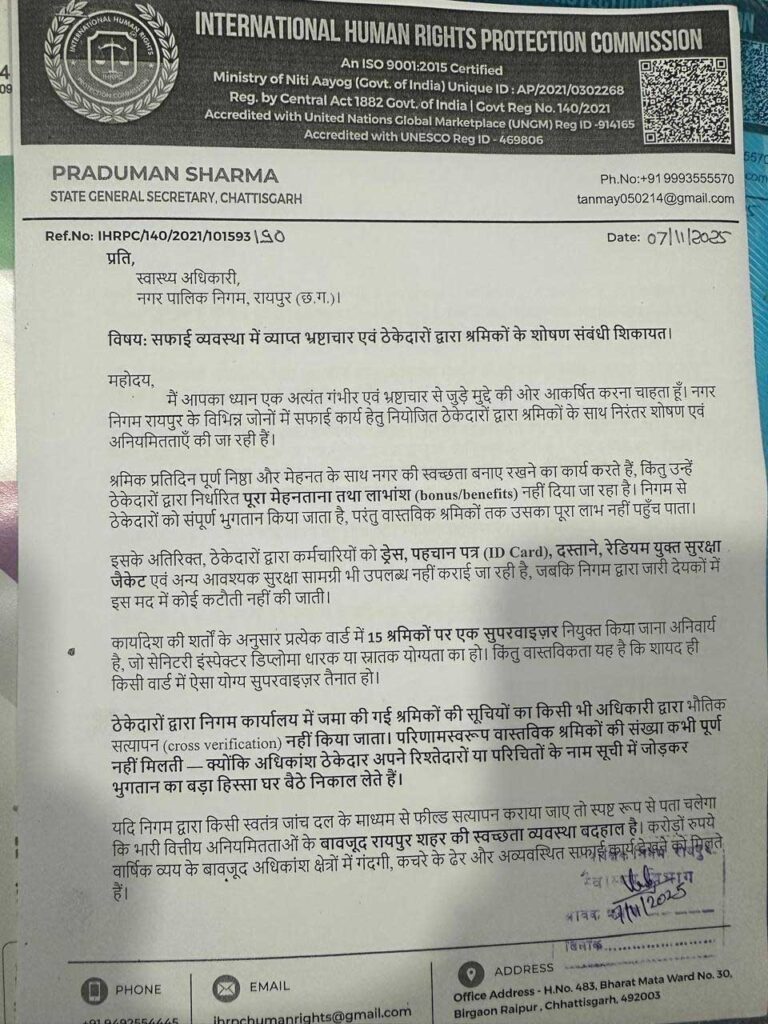 INTERNATIONAL HUMAN RIGHTS PROTECTION COMMISSION
An ISO 9001:2015 Certified
Ministry of Niti Aayog (Govt. of India) Unique ID : AP/2021/0302268
Reg. by Central Act 1882 Govt. of India | Govt Reg No. 140/2021
Accredited with United Nations Global Marketplace (UNGM) Reg ID -914165
Accredited with UNESCO Reg ID - 469806
INTERNATIONAL HUMAN RIGHTS
IHRPC
PROTECTION COMMISSION
PRADUMAN SHARMA
STATE GENERAL SECRETARY, CHATTISGARH
Ph.No:+91 9993555570
tanmay050214@gmail.com
Ref.No: IHRPC/140/2021/101593/90
Date: 07/11/2025
प्रति,
स्वास्थ्य अधिकारी,
नगर पालिक निगम, रायपुर (छ.ग.)।
विषय: सफाई व्यवस्था में व्याप्त भ्रष्टाचार एवं ठेकेदारों द्वारा श्रमिकों के शोषण संबंधी शिकायत।
महोदय,
मैं आपका ध्यान एक अत्यंत गंभीर एवं भ्रष्टाचार से जुड़े मुद्दे की ओर आकर्षित करना चाहता हूँ। नगर
निगम रायपुर के विभिन्न जोनों में सफाई कार्य हेतु नियोजित ठेकेदारों द्वारा श्रमिकों के साथ निरंतर शोषण एवं
अनियमितताएँ की जा रही हैं।
श्रमिक प्रतिदिन पूर्ण निष्ठा और मेहनत के साथ नगर की स्वच्छता बनाए रखने का कार्य करते हैं, किंतु उन्हें
ठेकेदारों द्वारा निर्धारित पूरा मेहनताना तथा लाभांश (bonus/benefits) नहीं दिया जा रहा है। निगम से
ठेकेदारों को संपूर्ण भुगतान किया जाता है, परंतु वास्तविक श्रमिकों तक उसका पूरा लाभ नहीं पहुँच पाता।
इसके अतिरिक्त, ठेकेदारों द्वारा कर्मचारियों को ड्रेस, पहचान पत्र (ID Card), दस्ताने, रेडियम युक्त सुरक्षा
जैकेट एवं अन्य आवश्यक सुरक्षा सामग्री भी उपलब्ध नहीं कराई जा रही है, जबकि निगम द्वारा जारी देयकों में
इस मद में कोई कटौती नहीं की जाती।
कार्यादेश की शर्तों के अनुसार प्रत्येक वार्ड में 15 श्रमिकों पर एक सुपरवाइज़र नियुक्त किया जाना अनिवार्य
है, जो सेनिटरी इंस्पेक्टर डिप्लोमा धारक या स्नातक योग्यता का हो। किंतु वास्तविकता यह है कि शायद ही
किसी वार्ड में ऐसा योग्य सुपरवाइज़र तैनात हो।
ठेकेदारों द्वारा निगम कार्यालय में जमा की गई श्रमिकों की सूचियों का किसी भी अधिकारी द्वारा भौतिक
सत्यापन (cross verification) नहीं किया जाता। परिणामस्वरूप वास्तविक श्रमिकों की संख्या कभी पूर्ण
नहीं मिलती — क्योंकि अधिकांश ठेकेदार अपने रिश्तेदारों या परिचितों के नाम सूची में जोड़कर
भुगतान का बड़ा हिस्सा घर बैठे निकाल लेते हैं।
यदि निगम द्वारा किसी स्वतंत्र जांच दल के माध्यम से फील्ड सत्यापन कराया जाए तो स्पष्ट रूप से पता चलेगा
कि भारी वित्तीय अनियमितताओं के बावजूद रायपुर शहर की स्वच्छता व्यवस्था बदहाल है। करोड़ों रुपये
वार्षिक व्यय के बावजूद अधिकांश क्षेत्रों में गंदगी, कचरे के ढेर और अव्यवस्थित सफाई कार्य देखने को मिलते
हैं।
7/11/2025
आवक
दिनांक
PHONE
+91 9492554445
EMAIL
ihrpchumanrights@gmail.com
ADDRESS
Office Address - H.No. 483, Bharat Mata Ward No. 30,
Birgaon Raipur, Chhattisgarh, 492003